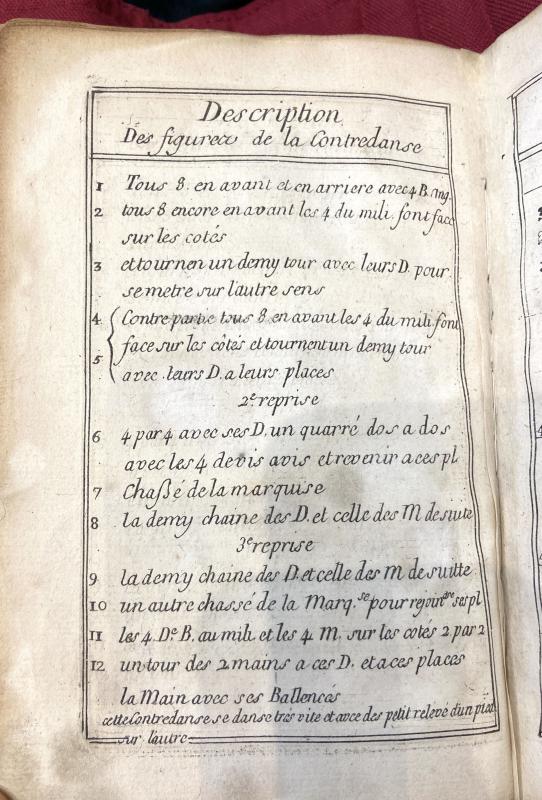 Description
Des figurez de la Contredanse
1 Tous 8. en avant et en arriere avec 4 B. Ang.
2 tous 8 encore en avant les 4 du mili. font face
sur les cotés
3 et tournen un demy tour avec leurs D. pour
se metre sur l'autre sens
4 Contre partie tous 8. en avant les 4 du mili. font
5 face sur les côtés et tournent un demy tour
avec leurs D. a leurs places
2e reprise
6 4 par 4 avec ses D. un quarré dos a dos
avec les 4 de vis avis et revenir a ces pl
7 Chaßé de la marquise
8 la demy chaine des D. et celle des M de suite
3e reprise
9 la demy chaine des D. et celle des M de suitte
10 un autre chassé de la Marq.se pour rejoindre ses pl
11 les 4 De B. au mili. et les 4 M. sur les cotés 2 par 2
12 un tour des 2 mains a ces D. et a ces places
la Main avec ses Ballencés
cette Contredanse se danse trés vite et avec des petit relevé d'un pied
sur l'autre